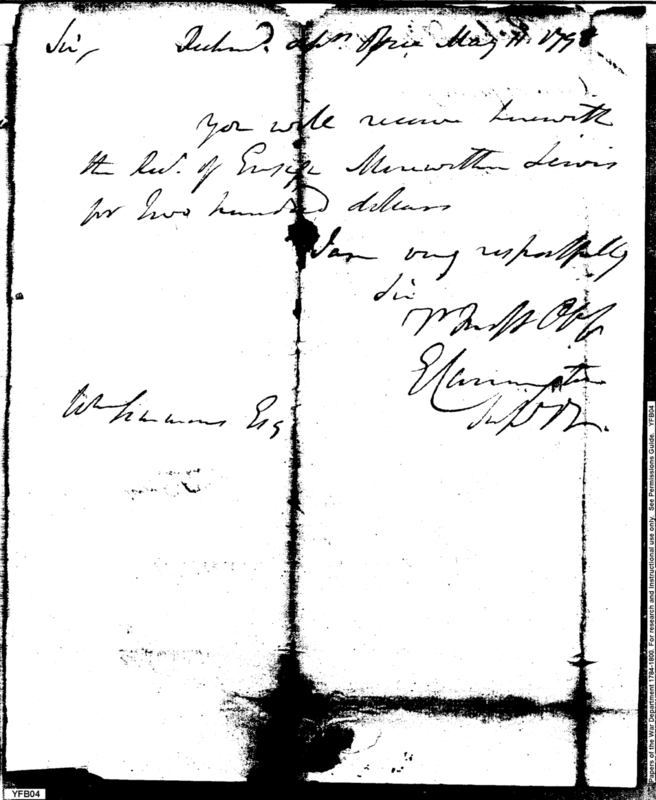 Sir, Richmd. Supn. Office May 11. 1798
You will receive herewith
the Rect. of Ensign Merewether Lewis
for Two hundred dollars
I am very respectfully
Sir
Yr
E Carrington
Wm Simmons Esq
Papers of the War Department 1784-1800. For research and Instructional use only. See Permissions Guide. YFB04
YFB04